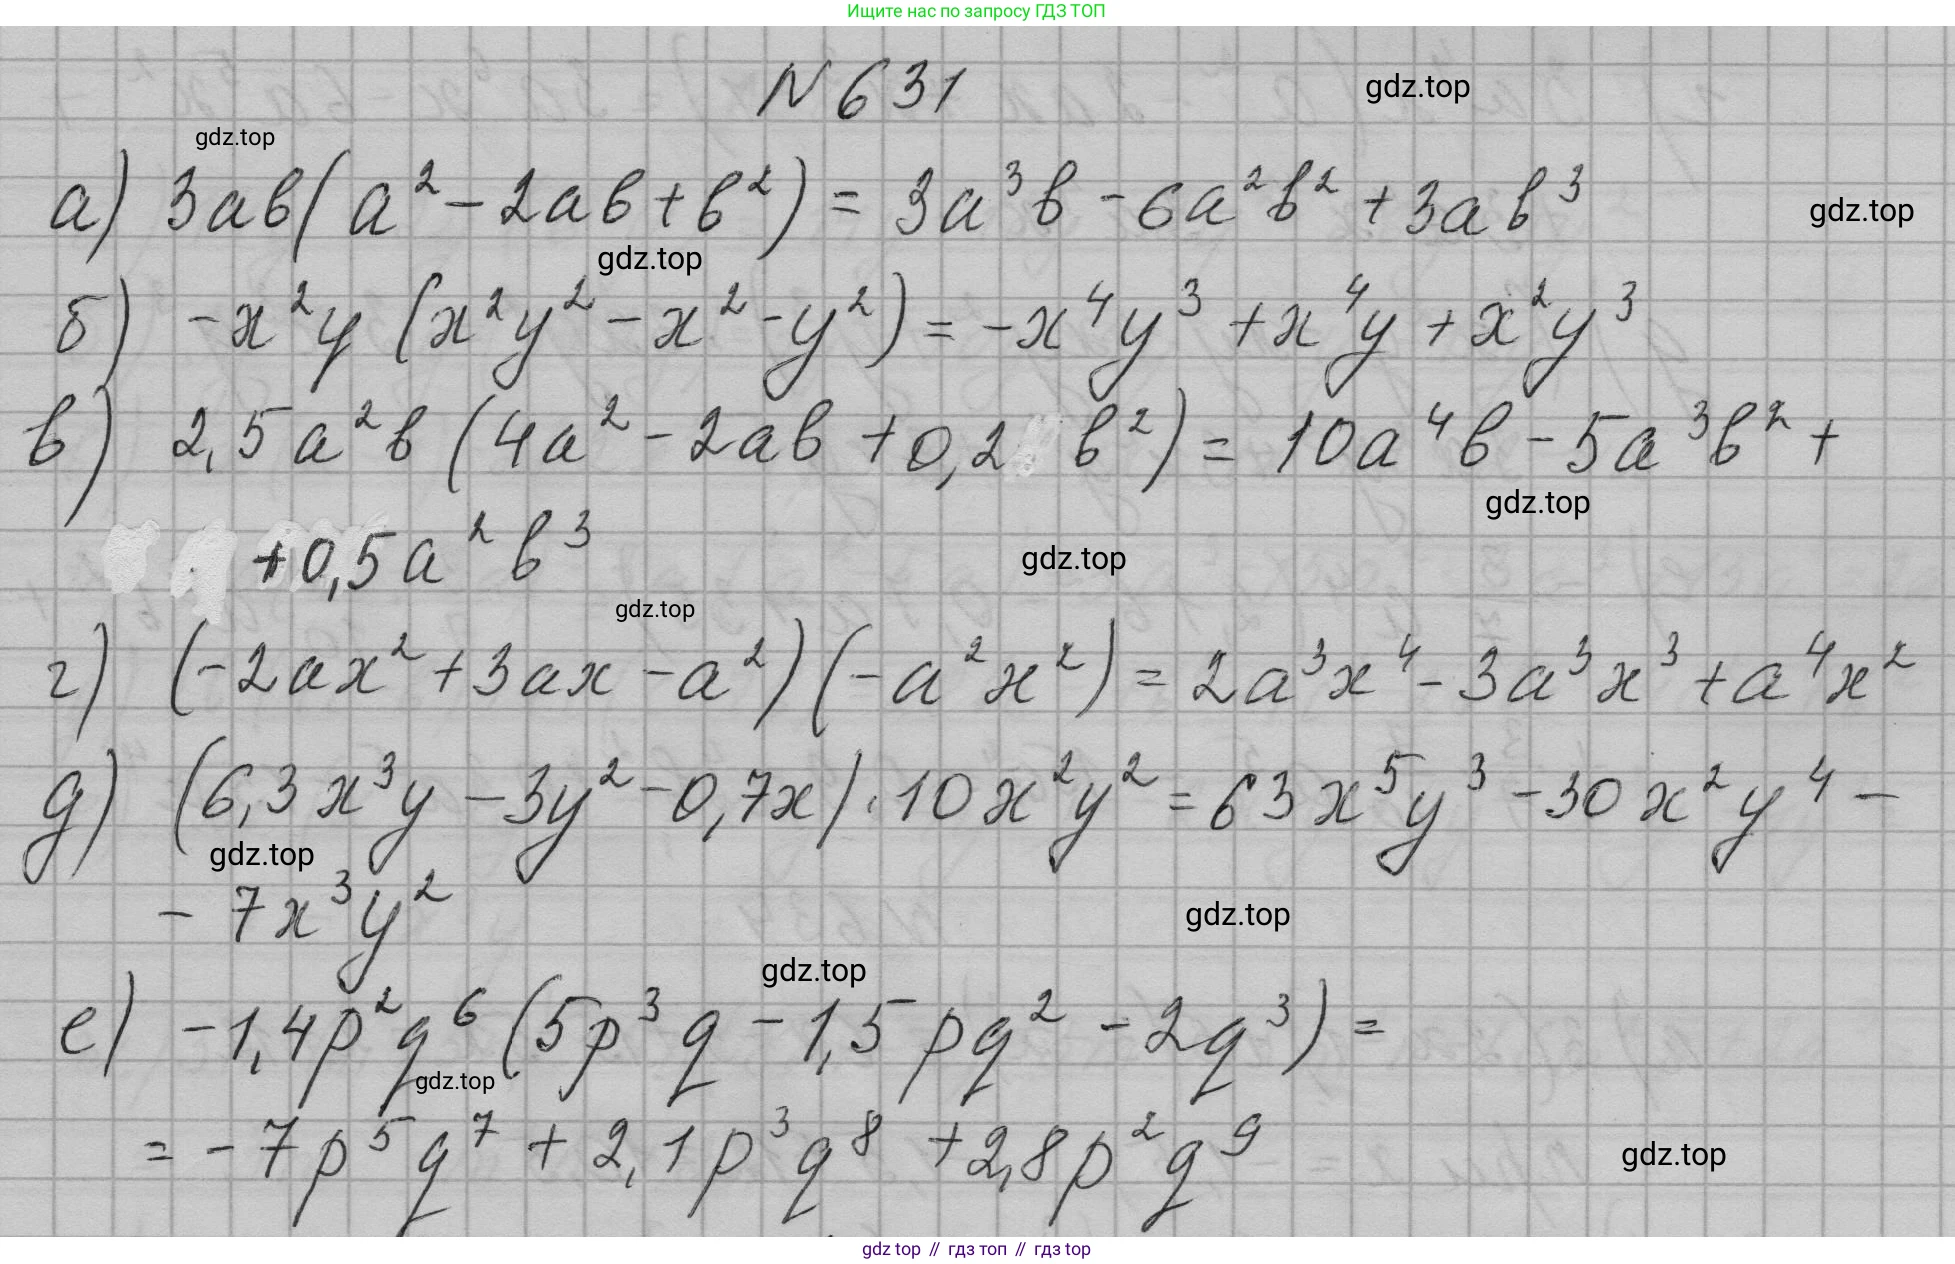 Ищите нас по запросу ГДЗ ТОП
N 631
gdz.top
gdz.top
а) 3ab(a² - 2ab + b²) = 3a³b - 6a²b² + 3ab³
gdz.top
gdz.top
б) -x²y (x²y² - x² - y²) = -x⁴y³ + x⁴y + x²y³
в) 2,5a²b (4a² - 2ab + 0,2 b²) = 10a⁴b - 5a³b² +
gdz.top
+ 0,5a²b³
gdz.top
gdz.top
г) (-2ax² + 3ax - a²)(-a²x²) = 2a³x⁴ - 3a³x³ + a⁴x²
д) (6,3x³y - 3y² - 0,7x) · 10x²y² = 63x⁵y³ - 30x²y⁴ -
gdz.top
- 7x³y²
gdz.top
gdz.top
е) -1,4p²q⁶ (5p³q - 1,5pq² - 2q³) =
gdz.top
= -7p⁵q⁷ + 2,1p³q⁸ + 2,8p²q⁹
gdz.top
gdz top // гдз топ // гдз top